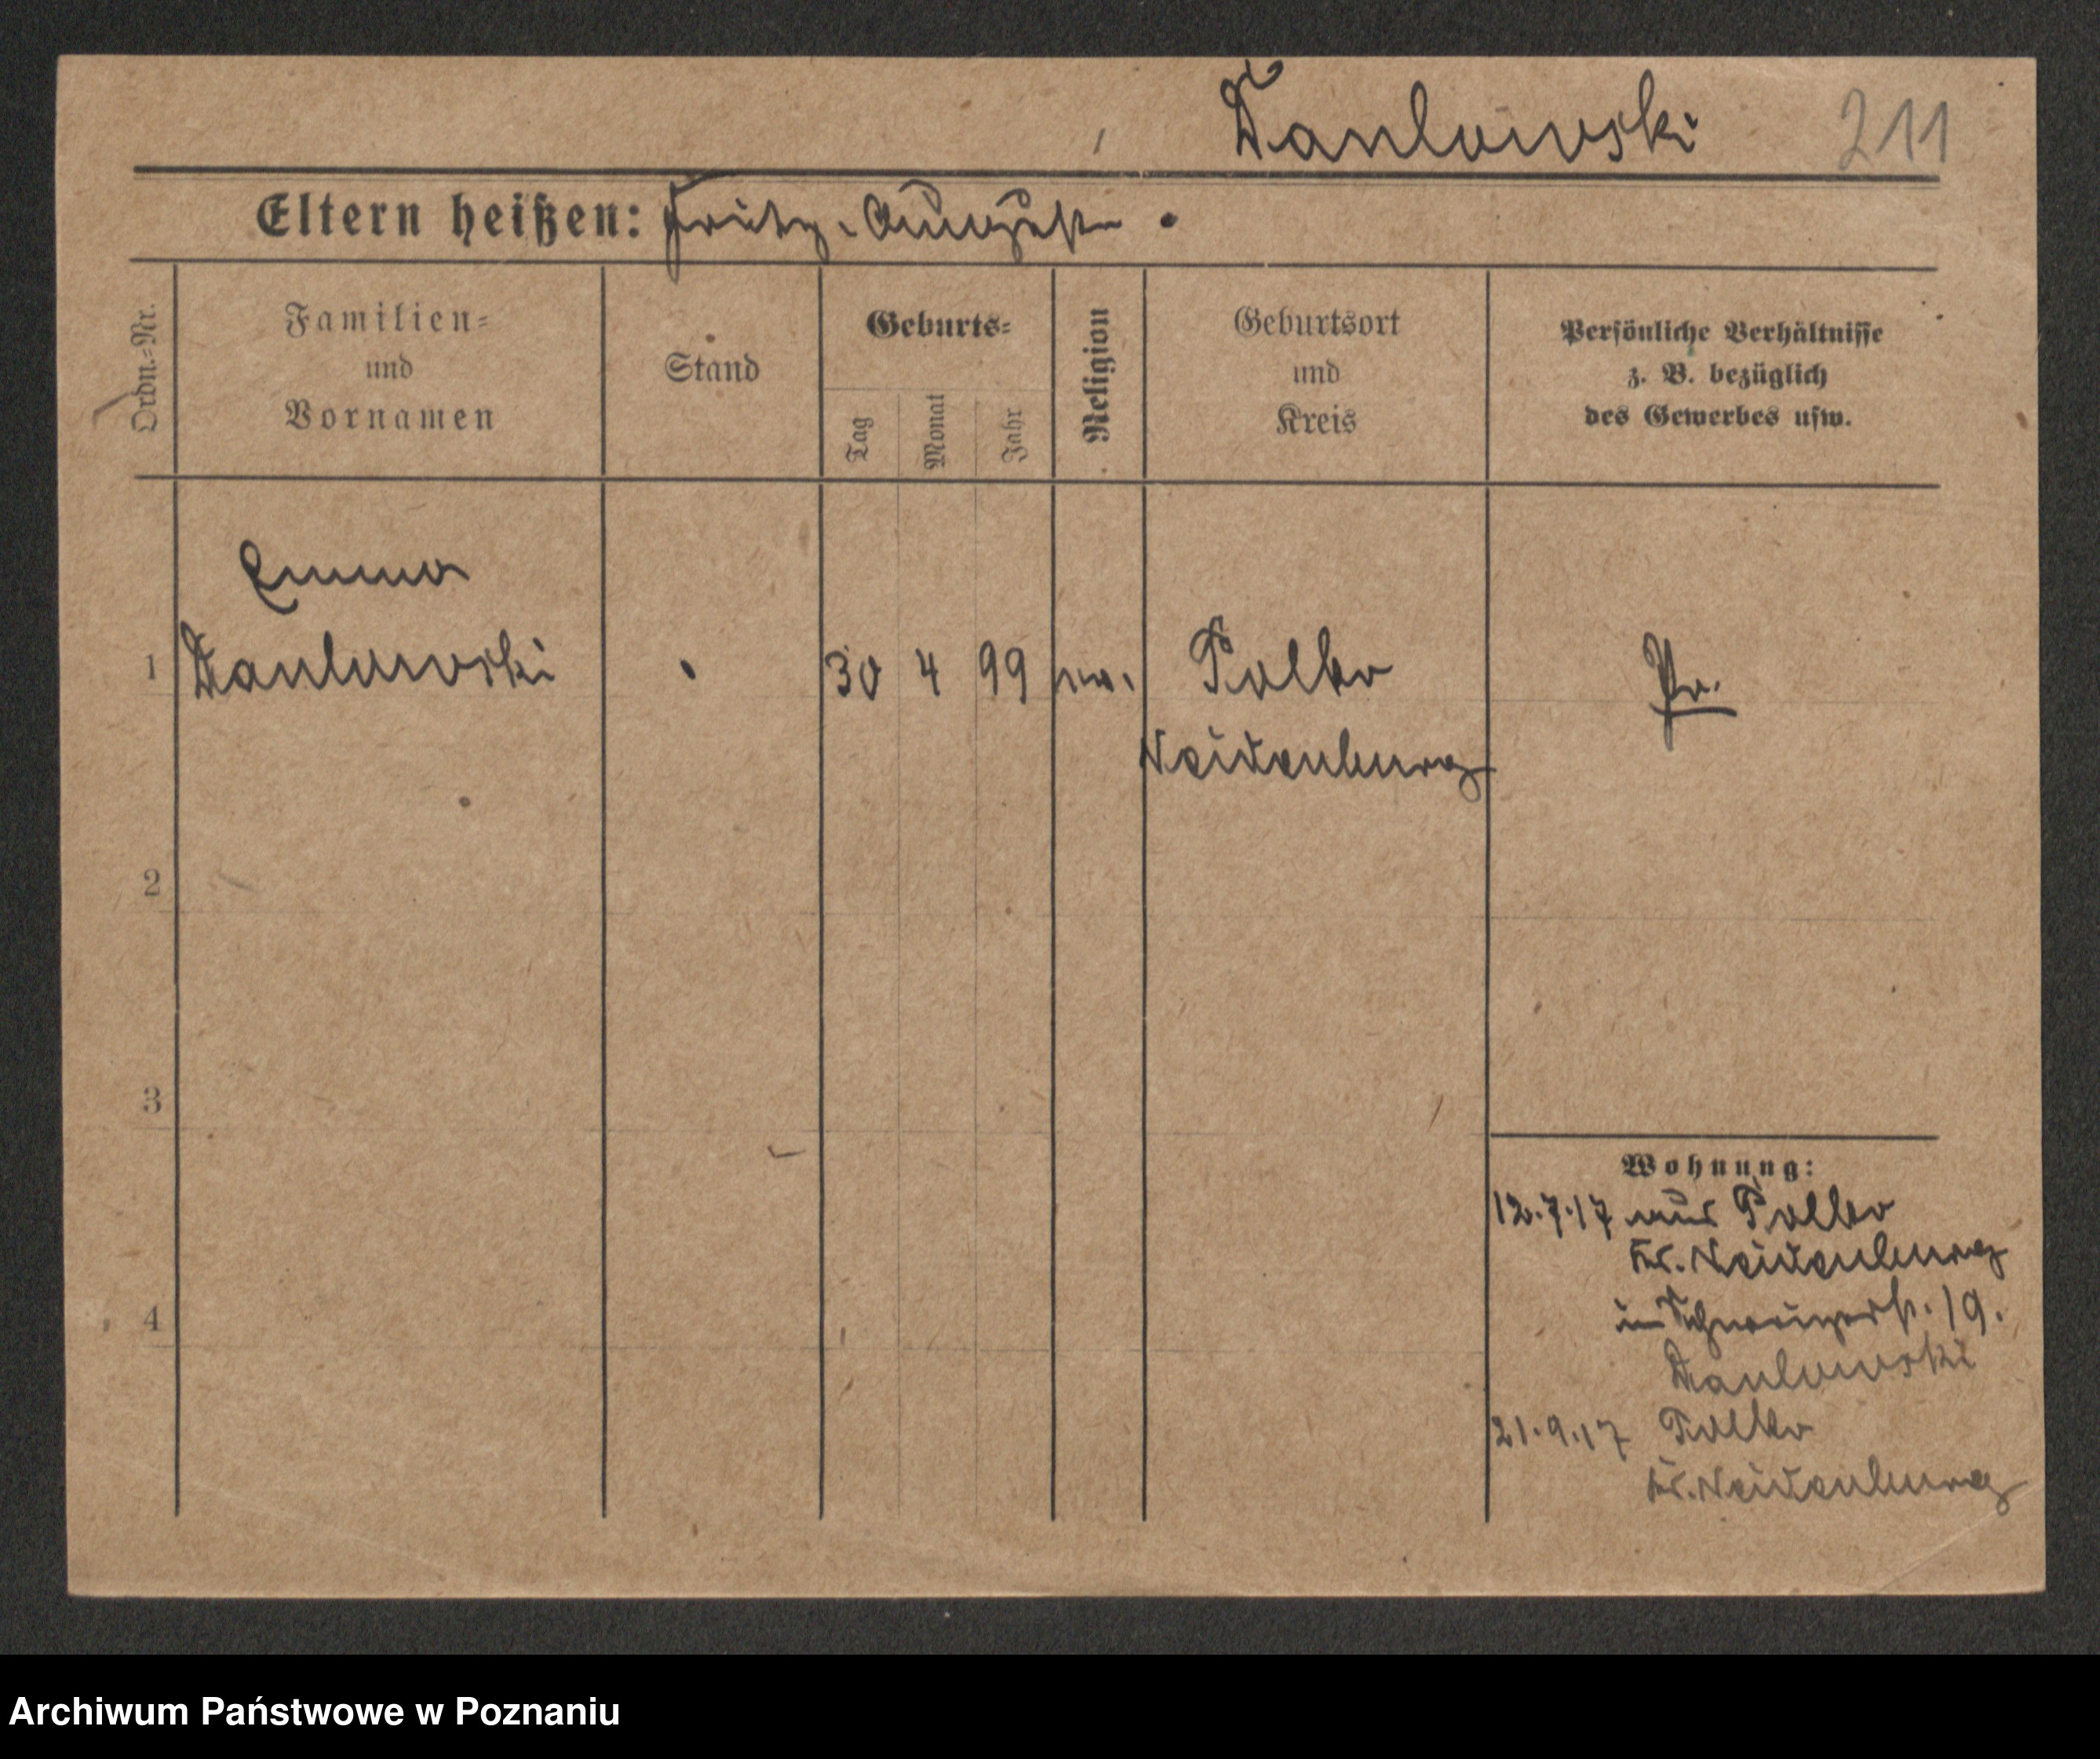 Danlowski 211
Eltern heißen: Fritz, Auguste.
Ordn.=Nr.
Familien=
und
Vornamen
Stand
Geburts=
Tag
Monat
Jahr
Religion
Geburtsort
und
Kreis
Persönliche Verhältnisse
z. B. bezüglich
des Gewerbes usw.
Emma
1 Danlowski 30 4 99 ev. Palko Pr.
Neidenburg
2
3
4
Wohnung:
12.7.17 aus Palko
Kr. Neidenburg
in 19.
Danlowski
21.9.17 Palko
Kr. Neidenburg
Archiwum Państwowe w Poznaniu